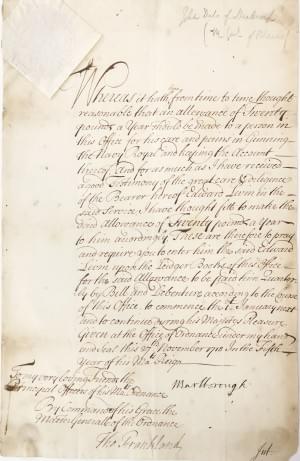 The Duke of
Whereas it hath from time to time thought
reasonable that an allowance of Twenty
pounds a Year should be made to a person in
this Office for his care and pains in Gunning
the Navy Royal and keeping the Account
thereof And for as much as I have received
a good Testimony of the great care & Diligence
of the Bearer hereof Edward
said Service, I have thought fitt to make the
said allowance of Twenty pounds a Year
to him accordingly These are therefore to pray
and require you to enter him the said Edward
upon the Leidger Books of this Office
for the said Allowance to be paid him Quarter
ly by Bill and Debenture according to the course
of this Office to commence the
and to continue during his Majesties Pleasure
Given at the Office of Ordnance Under my hand
and Seal this November In the Fifth
Year of his Mats Reign
To my very loving Friends the
Principal Officers of his Mats Ordnance
Marlborough
By Command of his Grace the
Master General of the Ordnance
Tho Frankland